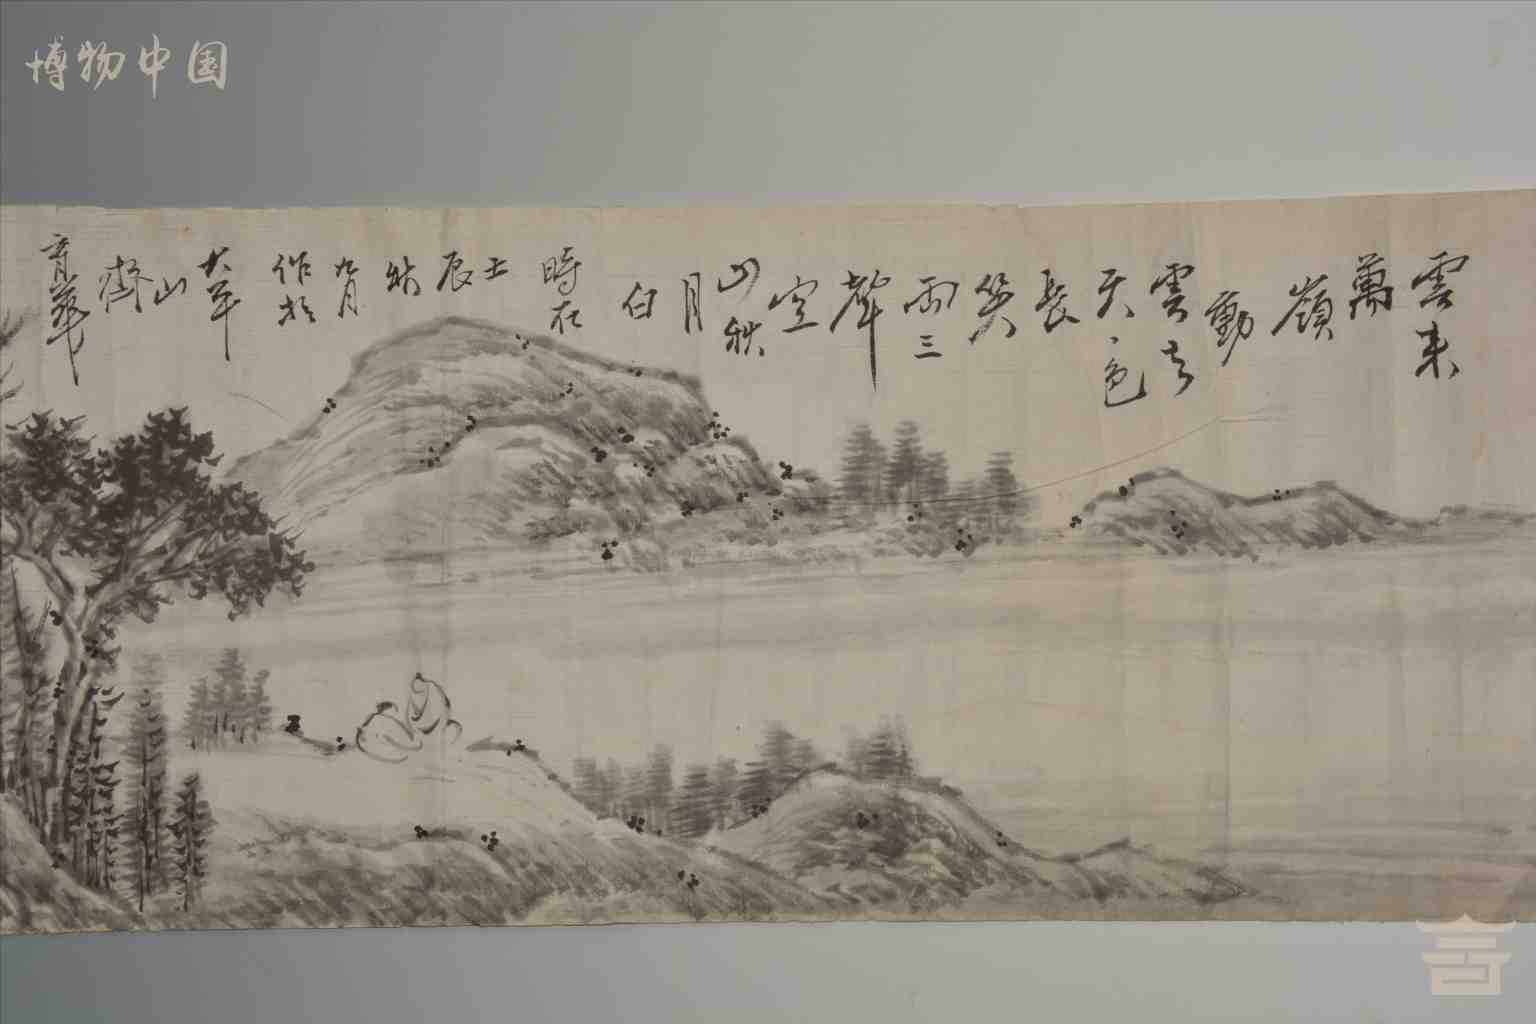 博物中国
雲来
萬
嶺
動
雲去
天一色
長
笑
兩三
聲
空
山秋
月
白
時在
壬辰
秋
九月
作於
山
齋
育華